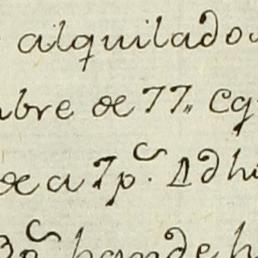 alquilado
bre de 77,, Cq
de a 7p.c 1dhi
3p.c han de h